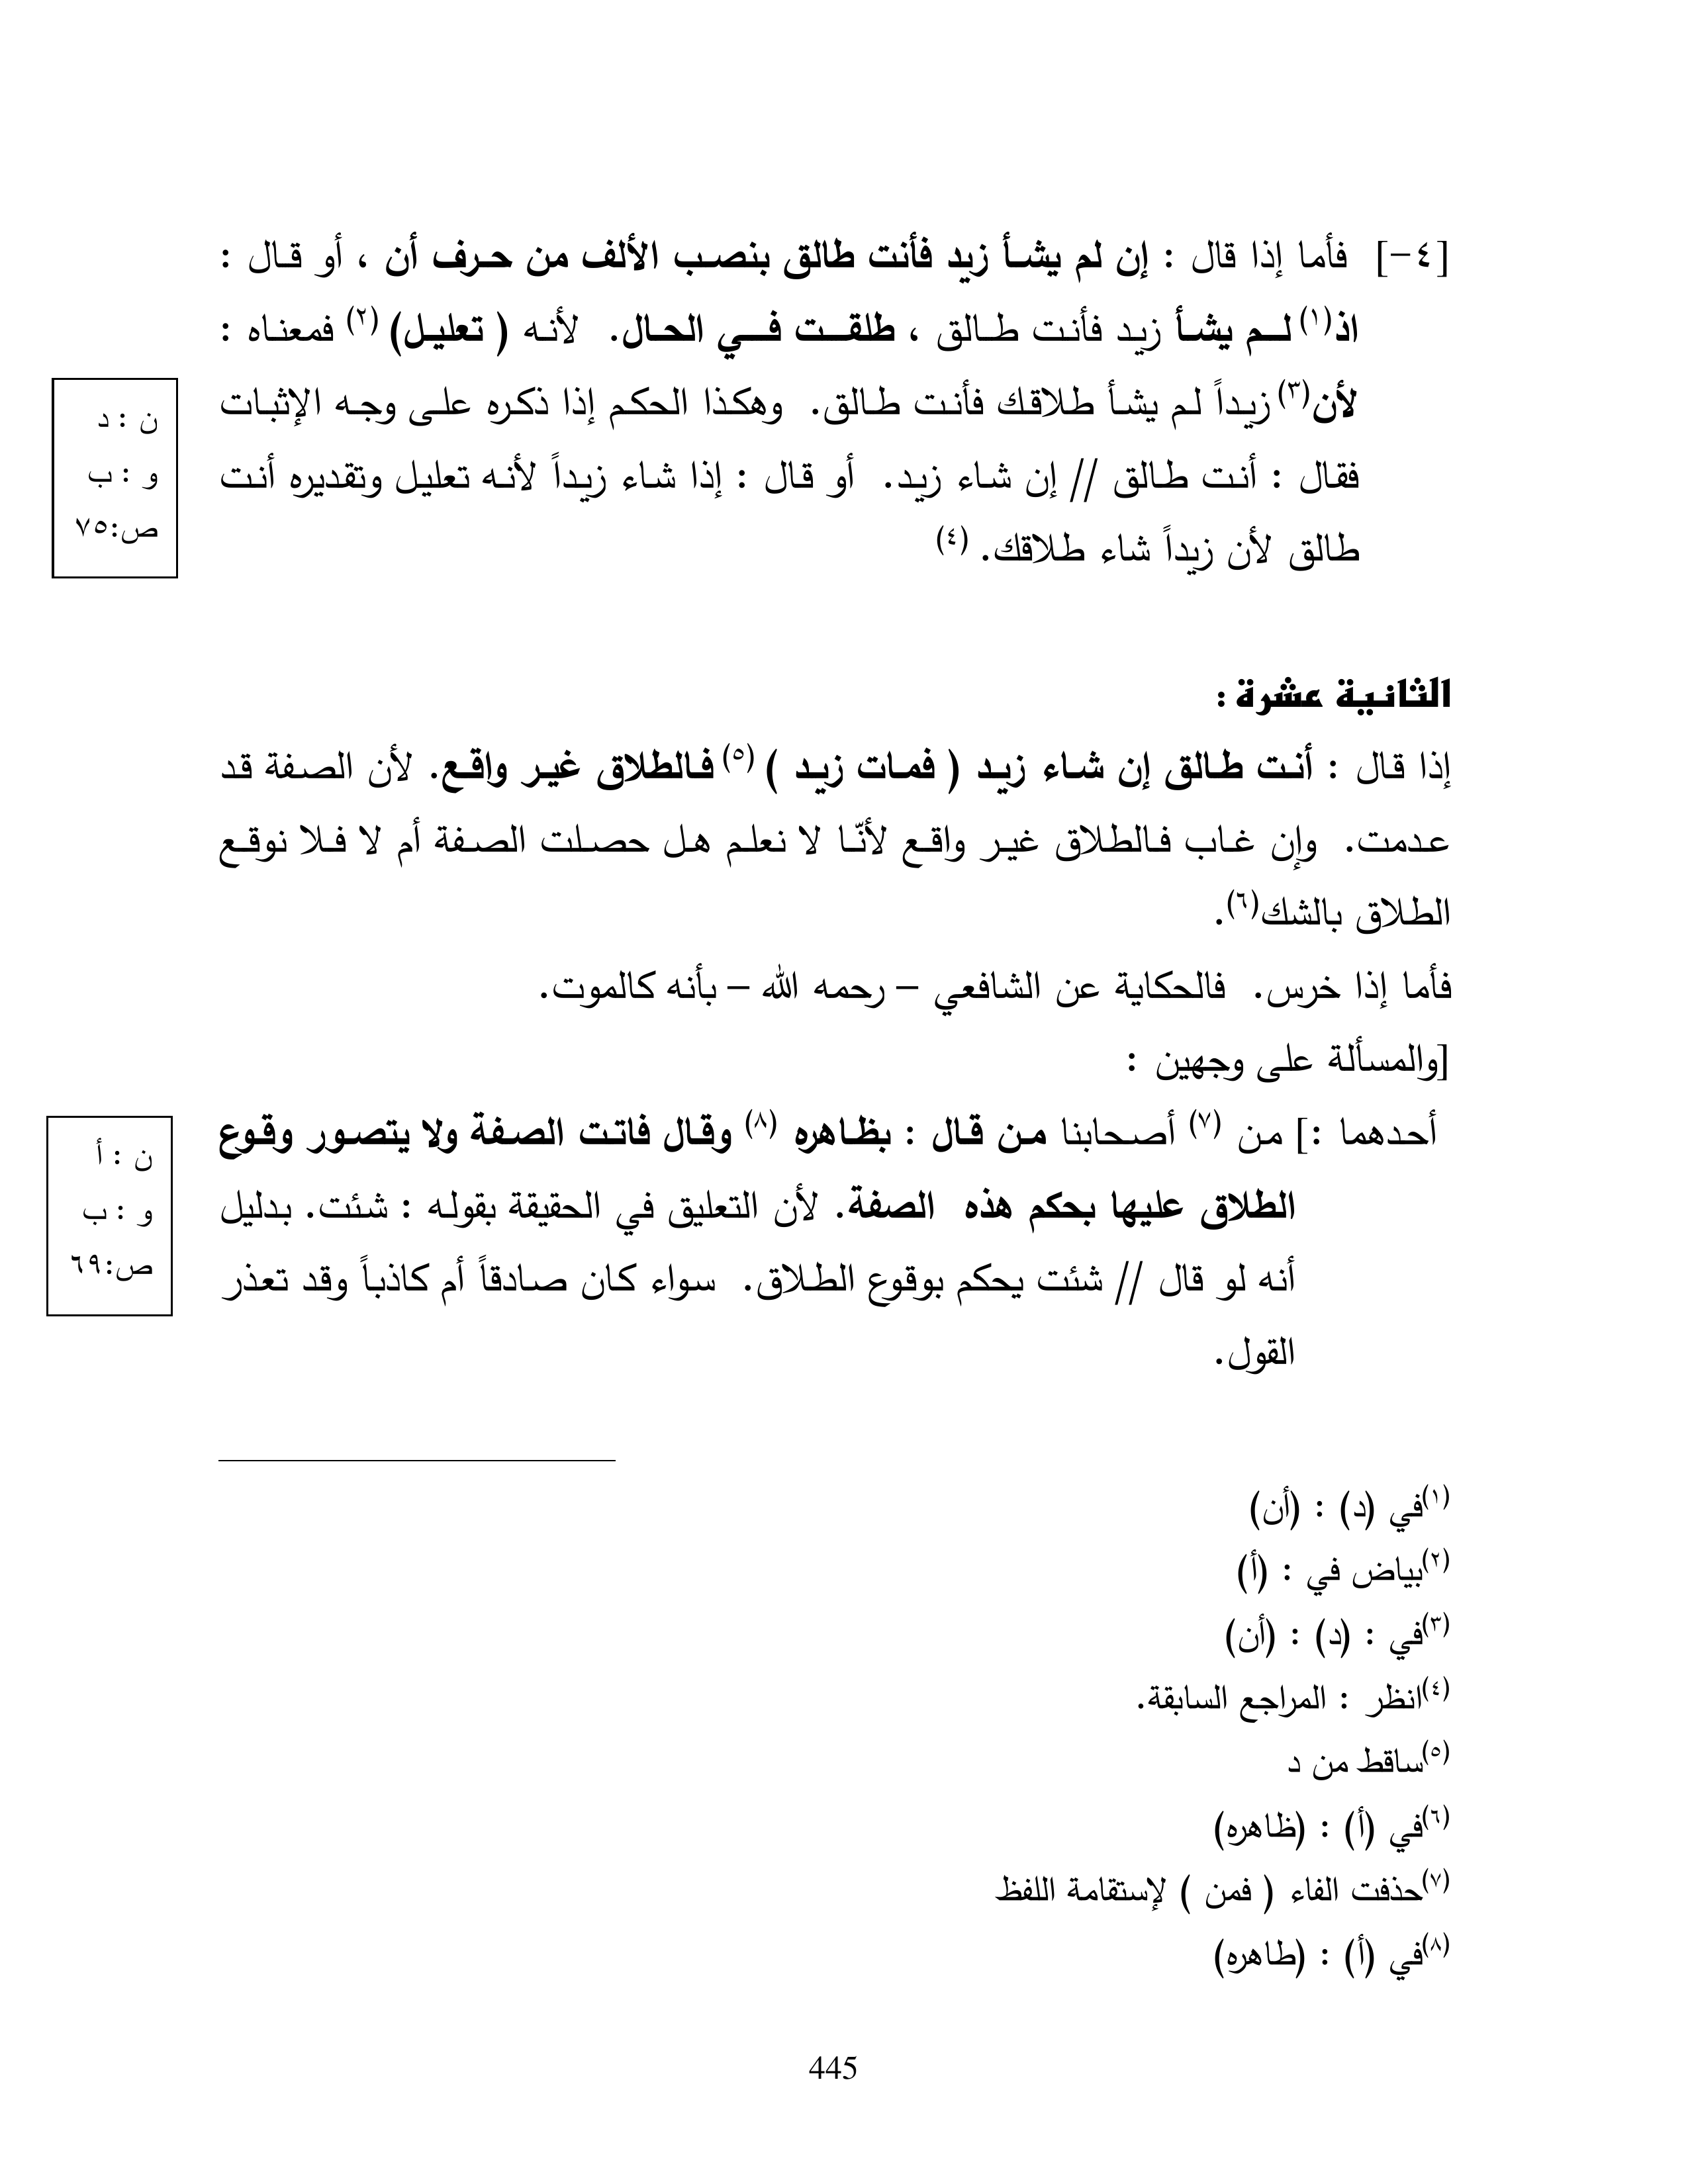 [٤-] فأما إذا قال : إن لم يشأ زيد فأنت طالق بنصب الألف من حرف أن ، أو قال :
اذ(١) لم يشأ زيد فأنت طالق ، طلقت في الحال. لأنه ( تعليل) (٢) فمعناه :
لأن(٣) زيداً لم يشأ طلاقك فأنت طالق. وهكذا الحكم إذا ذكره على وجه الإثبات
فقال : أنت طالق // إن شاء زيد. أو قال : إذا شاء زيداً لأنه تعليل وتقديره أنت
طالق لأن زيداً شاء طلاقك. (٤)
ن : د
و : ب
ص:٧٥
الثانية عشرة :
إذا قال : أنت طالق إن شاء زيد ( فمات زيد ) (٥) فالطلاق غير واقع. لأن الصفة قد
عدمت. وإن غاب فالطلاق غير واقع لأنّا لا نعلم هل حصلت الصفة أم لا فلا نوقع
الطلاق بالشك(٦).
فأما إذا خرس. فالحكاية عن الشافعي – رحمه الله – بأنه كالموت.
[والمسألة على وجهين :
أحدهما :] من (٧) أصحابنا من قال : بظاهره (٨) وقال فاتت الصفة ولا يتصور وقوع
الطلاق عليها بحكم هذه الصفة. لأن التعليق في الحقيقة بقوله : شئت. بدليل
أنه لو قال // شئت يحكم بوقوع الطلاق. سواء كان صادقاً أم كاذباً وقد تعذر
القول.
ن : أ
و : ب
ص:٦٩
(١)في (د) : (أن)
(٢)بياض في : (أ)
(٣)في : (د) : (أن)
(٤)انظر : المراجع السابقة.
(٥)ساقط من د
(٦)في (أ) : (ظاهره)
(٧)حذفت الفاء ( فمن ) لإستقامة اللفظ
(٨)في (أ) : (طاهره)
445